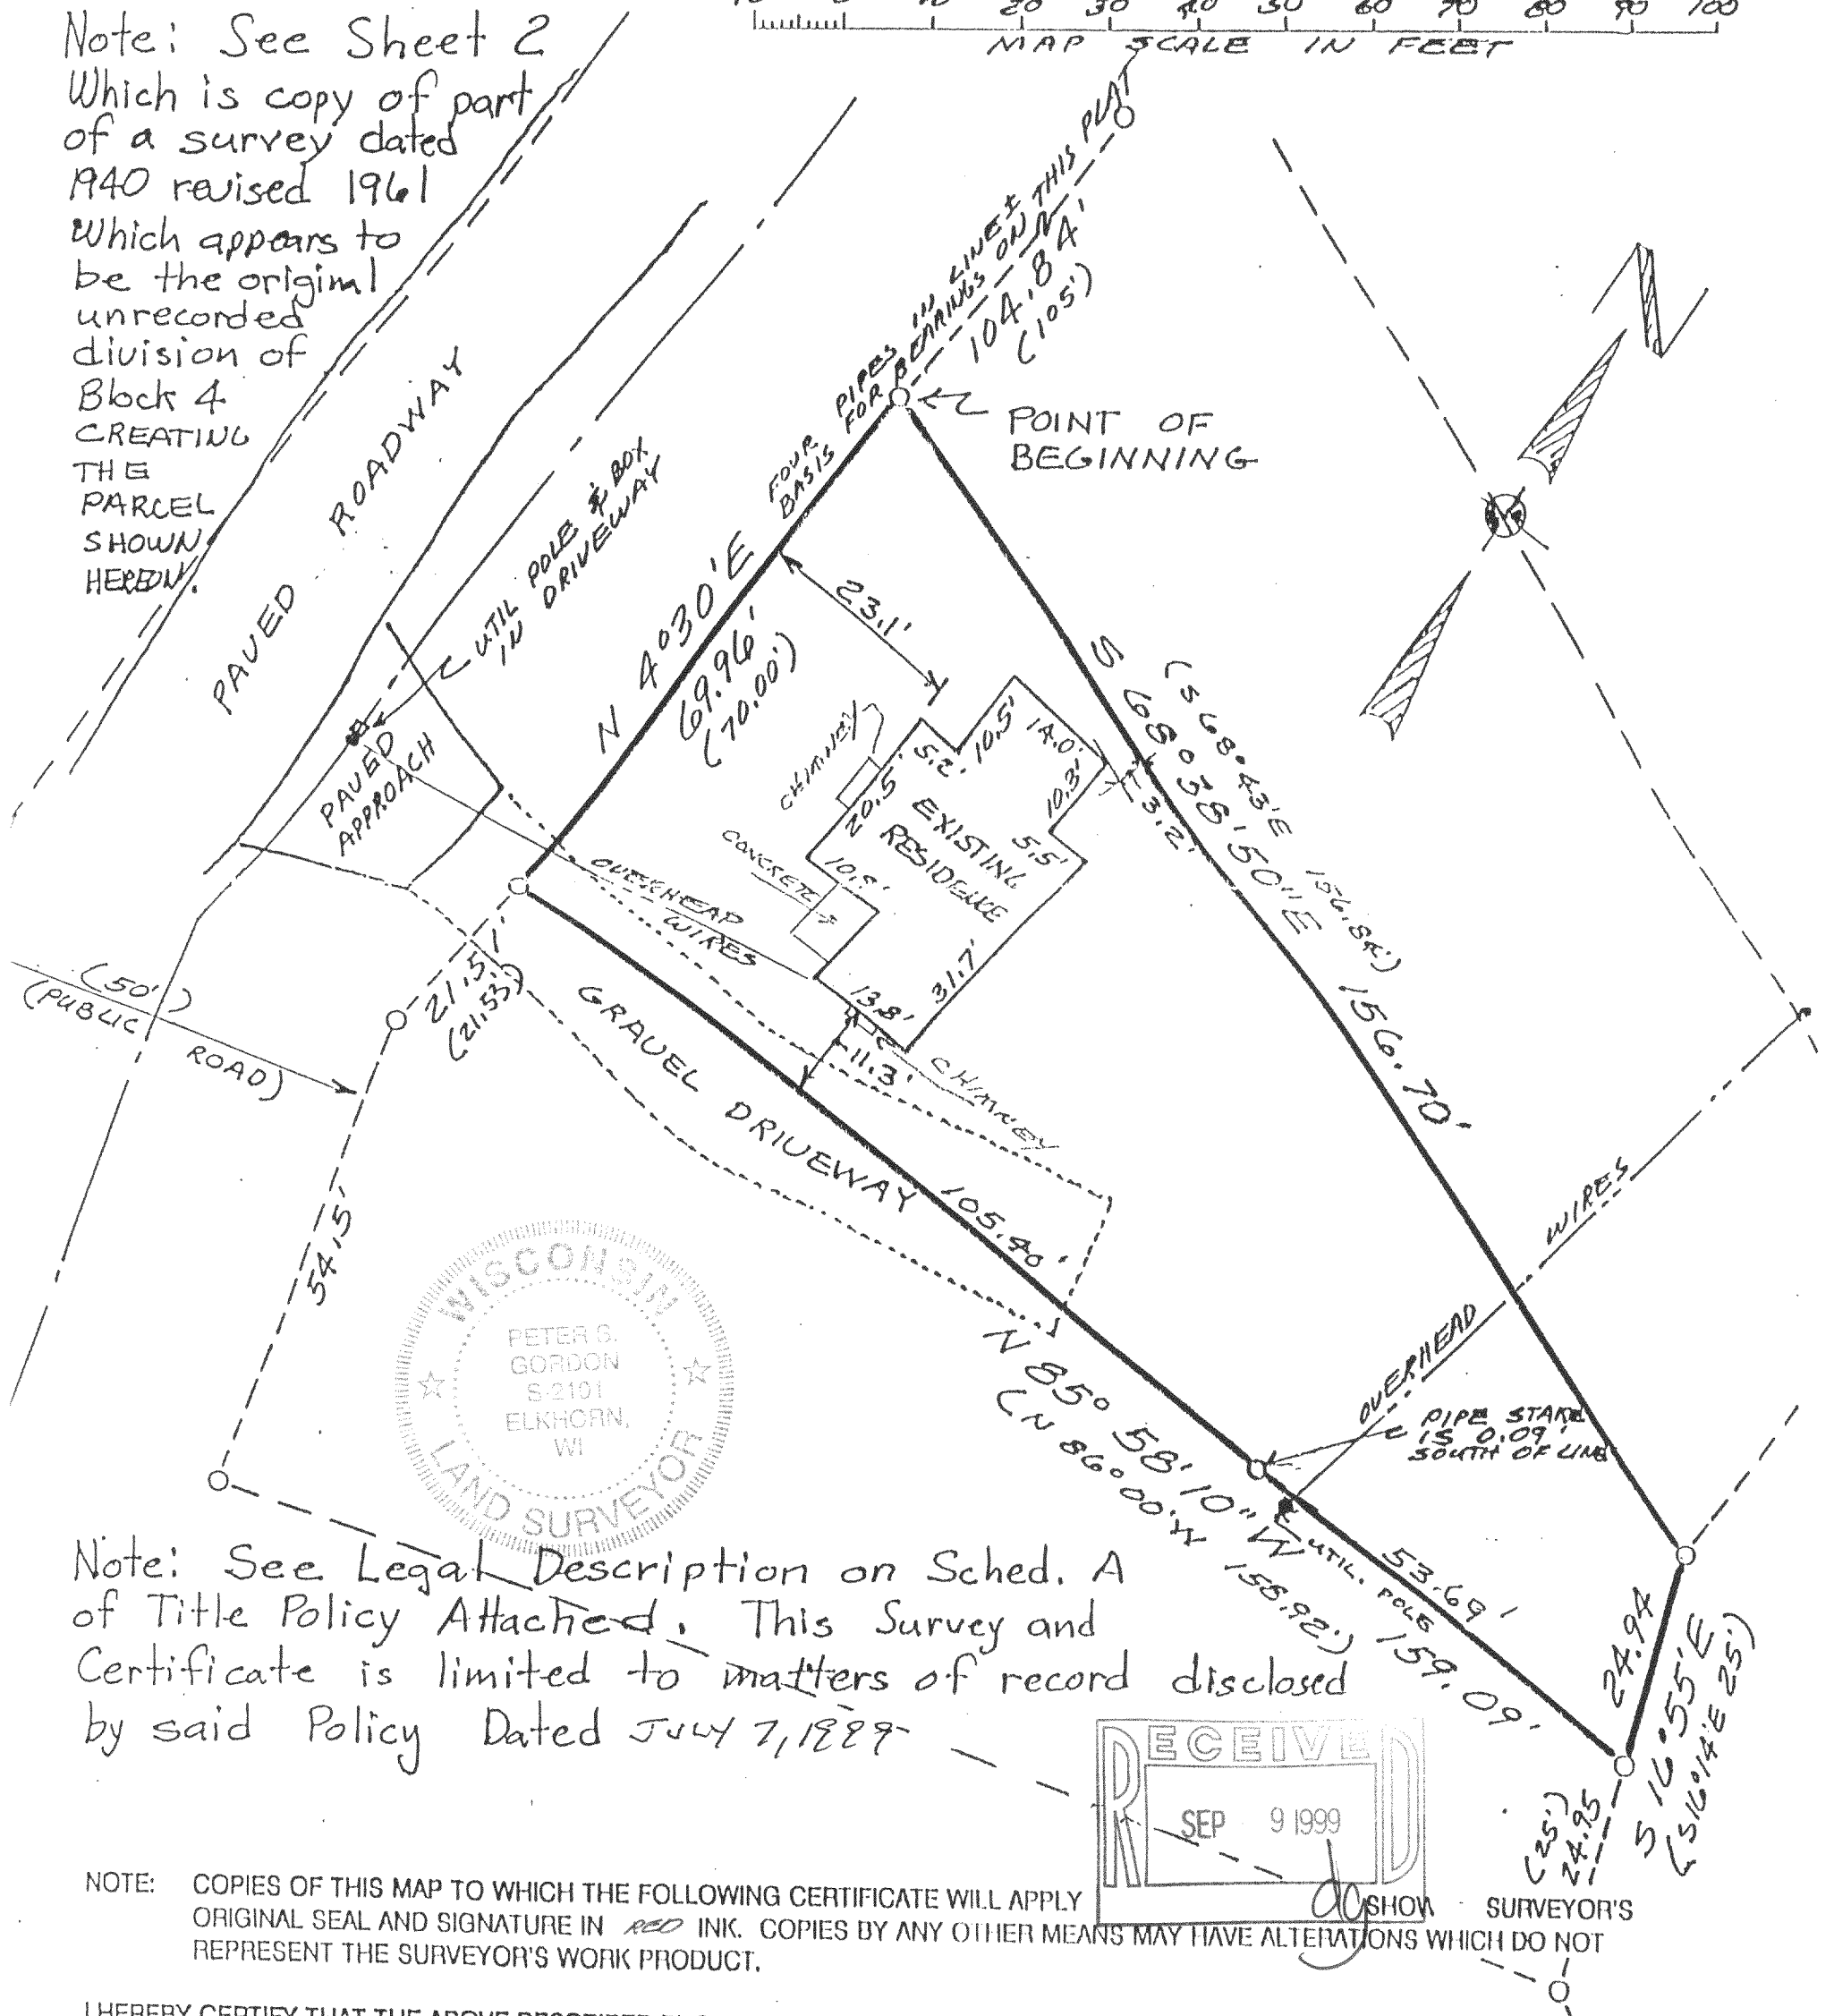 10 0 10 20 30 40 50 60 70 80 90 100
MAP SCALE IN FEET
Note: See Sheet 2
Which is copy of part
of a survey dated
1940 revised 1961
Which appears to
be the original
unrecorded
division of
Block 4
CREATING
THE
PARCEL
SHOWN
HEREON.
PAVED ROADWAY
UTIL POLE & BOX
IN DRIVEWAY
PAVED
APPROACH
FOUR PIPES IN LINE ±
BASIS FOR BEARINGS ON THIS PLAT
104.84'
(105')
POINT OF
BEGINNING
N
N 4°30'E
69.96'
(70.00')
23.1'
CHIMNEY
5.2'
10.5'
14.0'
10.3'
20.5'
5.5'
EXISTING
RESIDENCE
CONCRETE
13.8'
31.7'
3.2'
(S 68°43'E 156.84')
S 68°38'50"E 156.70'
OVERHEAD
WIRES
21.51'
(21.53)
(50')
(PUBLIC ROAD)
54.5'
GRAVEL DRIVEWAY
11.3'
CHIMNEY
105.40'
OVERHEAD WIRES
PIPE STAKE
IS 0.09'
SOUTH OF LINE
N 85° 58' 10" W 159.09'
(N 86°00'W 158.92')
UTIL. POLE
53.69'
24.94
S 16°55'E
(S16°14'E 25')
(25')
24.95
WISCONSIN
PETER G.
GORDON
S-2101
ELKHORN,
WI
LAND SURVEYOR
Note: See Legal Description on Sched. A
of Title Policy Attached. This Survey and
Certificate is limited to matters of record disclosed
by said Policy Dated JULY 7, 1999
RECEIVED
SEP 9 1999
dg
NOTE: COPIES OF THIS MAP TO WHICH THE FOLLOWING CERTIFICATE WILL APPLY SHOW SURVEYOR'S
ORIGINAL SEAL AND SIGNATURE IN RED INK. COPIES BY ANY OTHER MEANS MAY HAVE ALTERATIONS WHICH DO NOT
REPRESENT THE SURVEYOR'S WORK PRODUCT.
I HEREBY CERTIFY THAT THE ABOVE DESCRIBED